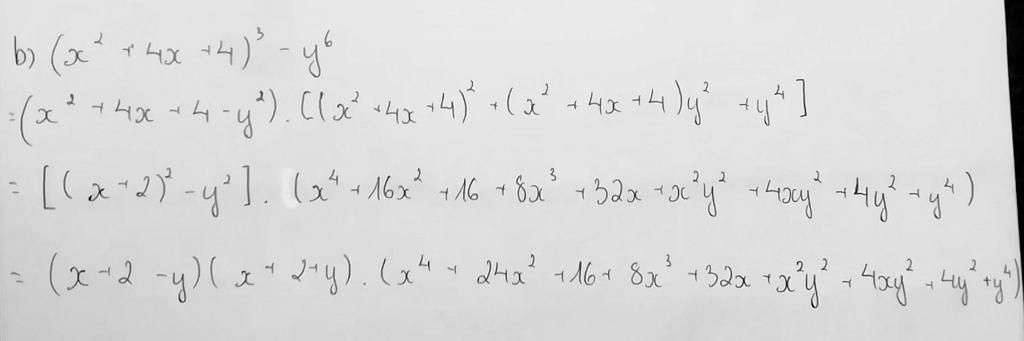 b) (x² + 4x + 4)³ - y⁶
= (x² + 4x + 4 - y²) . [(x² + 4x + 4)² + (x² + 4x + 4)y² + y⁴]
= [(x + 2)² - y²] . (x⁴ + 16x² + 16 + 8x³ + 32x + x²y² + 4xy² + 4y² + y⁴)
= (x + 2 - y)(x + 2 + y) . (x⁴ + 24x² + 16 + 8x³ + 32x + x²y² + 4xy² + 4y² + y⁴)